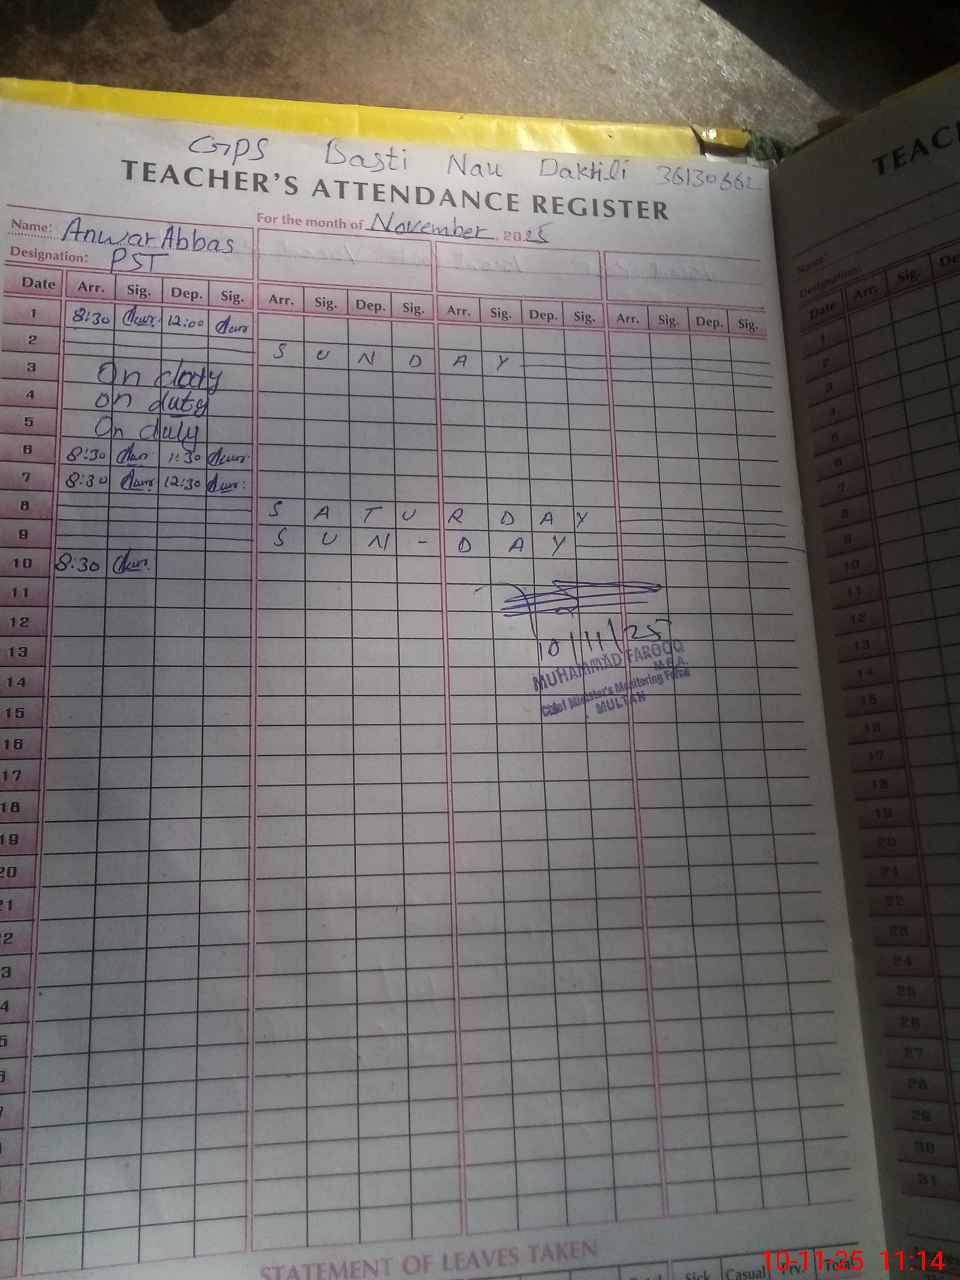 GPS Basti Nau Daktili 36130662
TEACHER'S ATTENDANCE REGISTER
TEAC
Name: Anwar Abbas
For the month of November, 2025
Designation: PST
Name:
Designation:
Date Arr. Sig. Dep. Sig. Arr. Sig. Dep. Sig. Arr. Sig. Dep. Sig. Arr. Sig. Dep. Sig.
Date Arr. Sig. De
1 8:30 12:00
2 SUNDAY
3 On duty
4 on duty
5 On duty
6 8:30 1:30
7 8:30 12:30
8 SATURDAY
9 SUN-DAY
10 8:30
11
12
10/11/25
13
MUHAMMAD FAROOQ
M.E.A.
14
Chief Minister's Monitoring Force
MULTAN
15
16
17
18
19
20
21
2
3
4
5
6
7
1
2
3
4
5
6
7
8
9
10
11
12
13
14
15
16
17
18
19
20
21
22
23
24
25
26
27
28
29
30
31
STATEMENT OF LEAVES TAKEN
Sick Casual Prv. Total
10-11-25 11:14